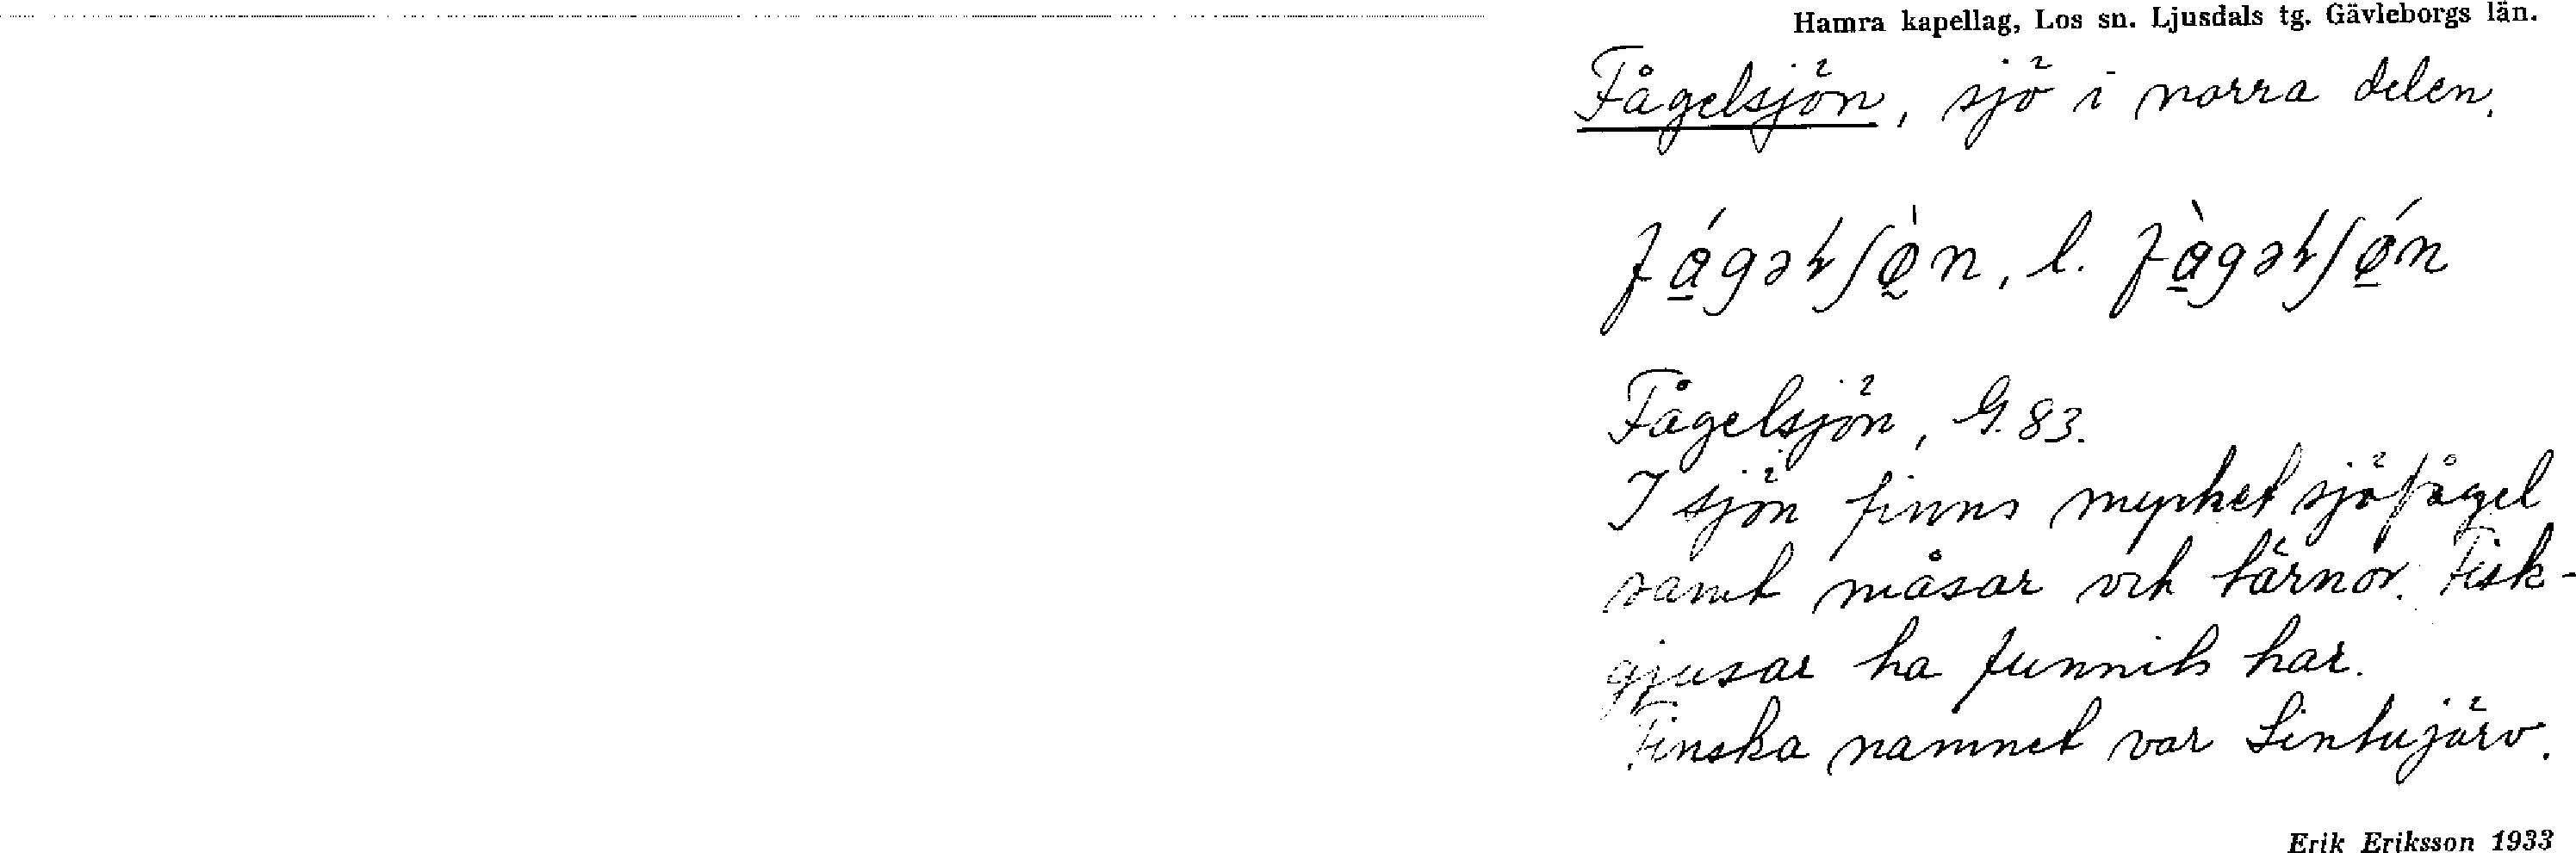 Hamra kapellag, Los sn. Ljusdals tg. Gävleborgs län.
Fågelsjön, sjö i norra delen.
l.
Fågelsjön, G. 83.
I sjön finns mycket sjöfågel
samt måsar och tärnor. Fisk-
gjusar ha funnits här.
Finska namnet var Lintujärv.
Erik Eriksson 1933